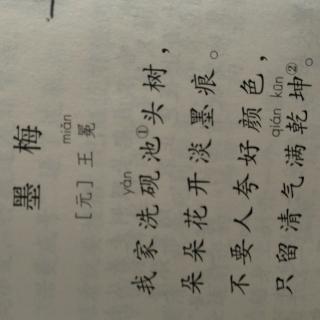 墨梅
[元] 王冕
mián
我家洗砚池①头树，
yàn
朵朵花开淡墨痕。
不要人夸好颜色，
只留清气满乾坤②。
qián kūn